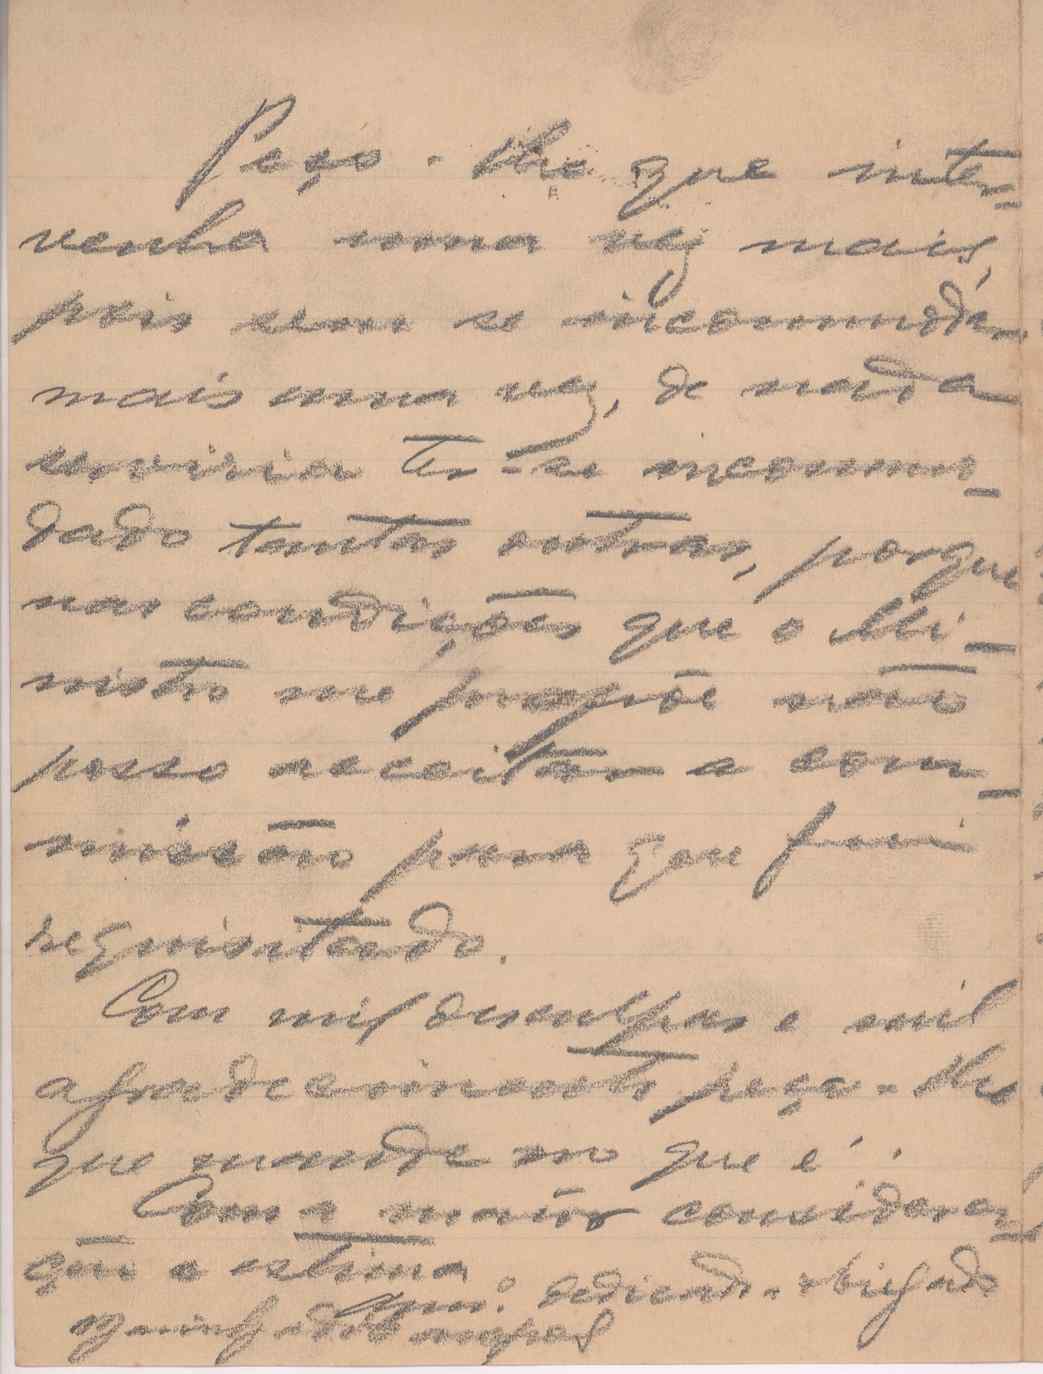 Peço-lhe que inter-
venha uma vez mais,
pois sem se incommodar
mais uma vez, de nada
serviria ter-se incommo-
dado tantas outras, porque
nas condições que o Mi-
nistro me propõe não
posso acceitar a com-
missão para que fui
requisitado.
Com mil desculpas e mil
agradecimentos peço-lhe
que mande no que é.
Com a maior considera-
ção e estima
Am.º dedicado obrigado